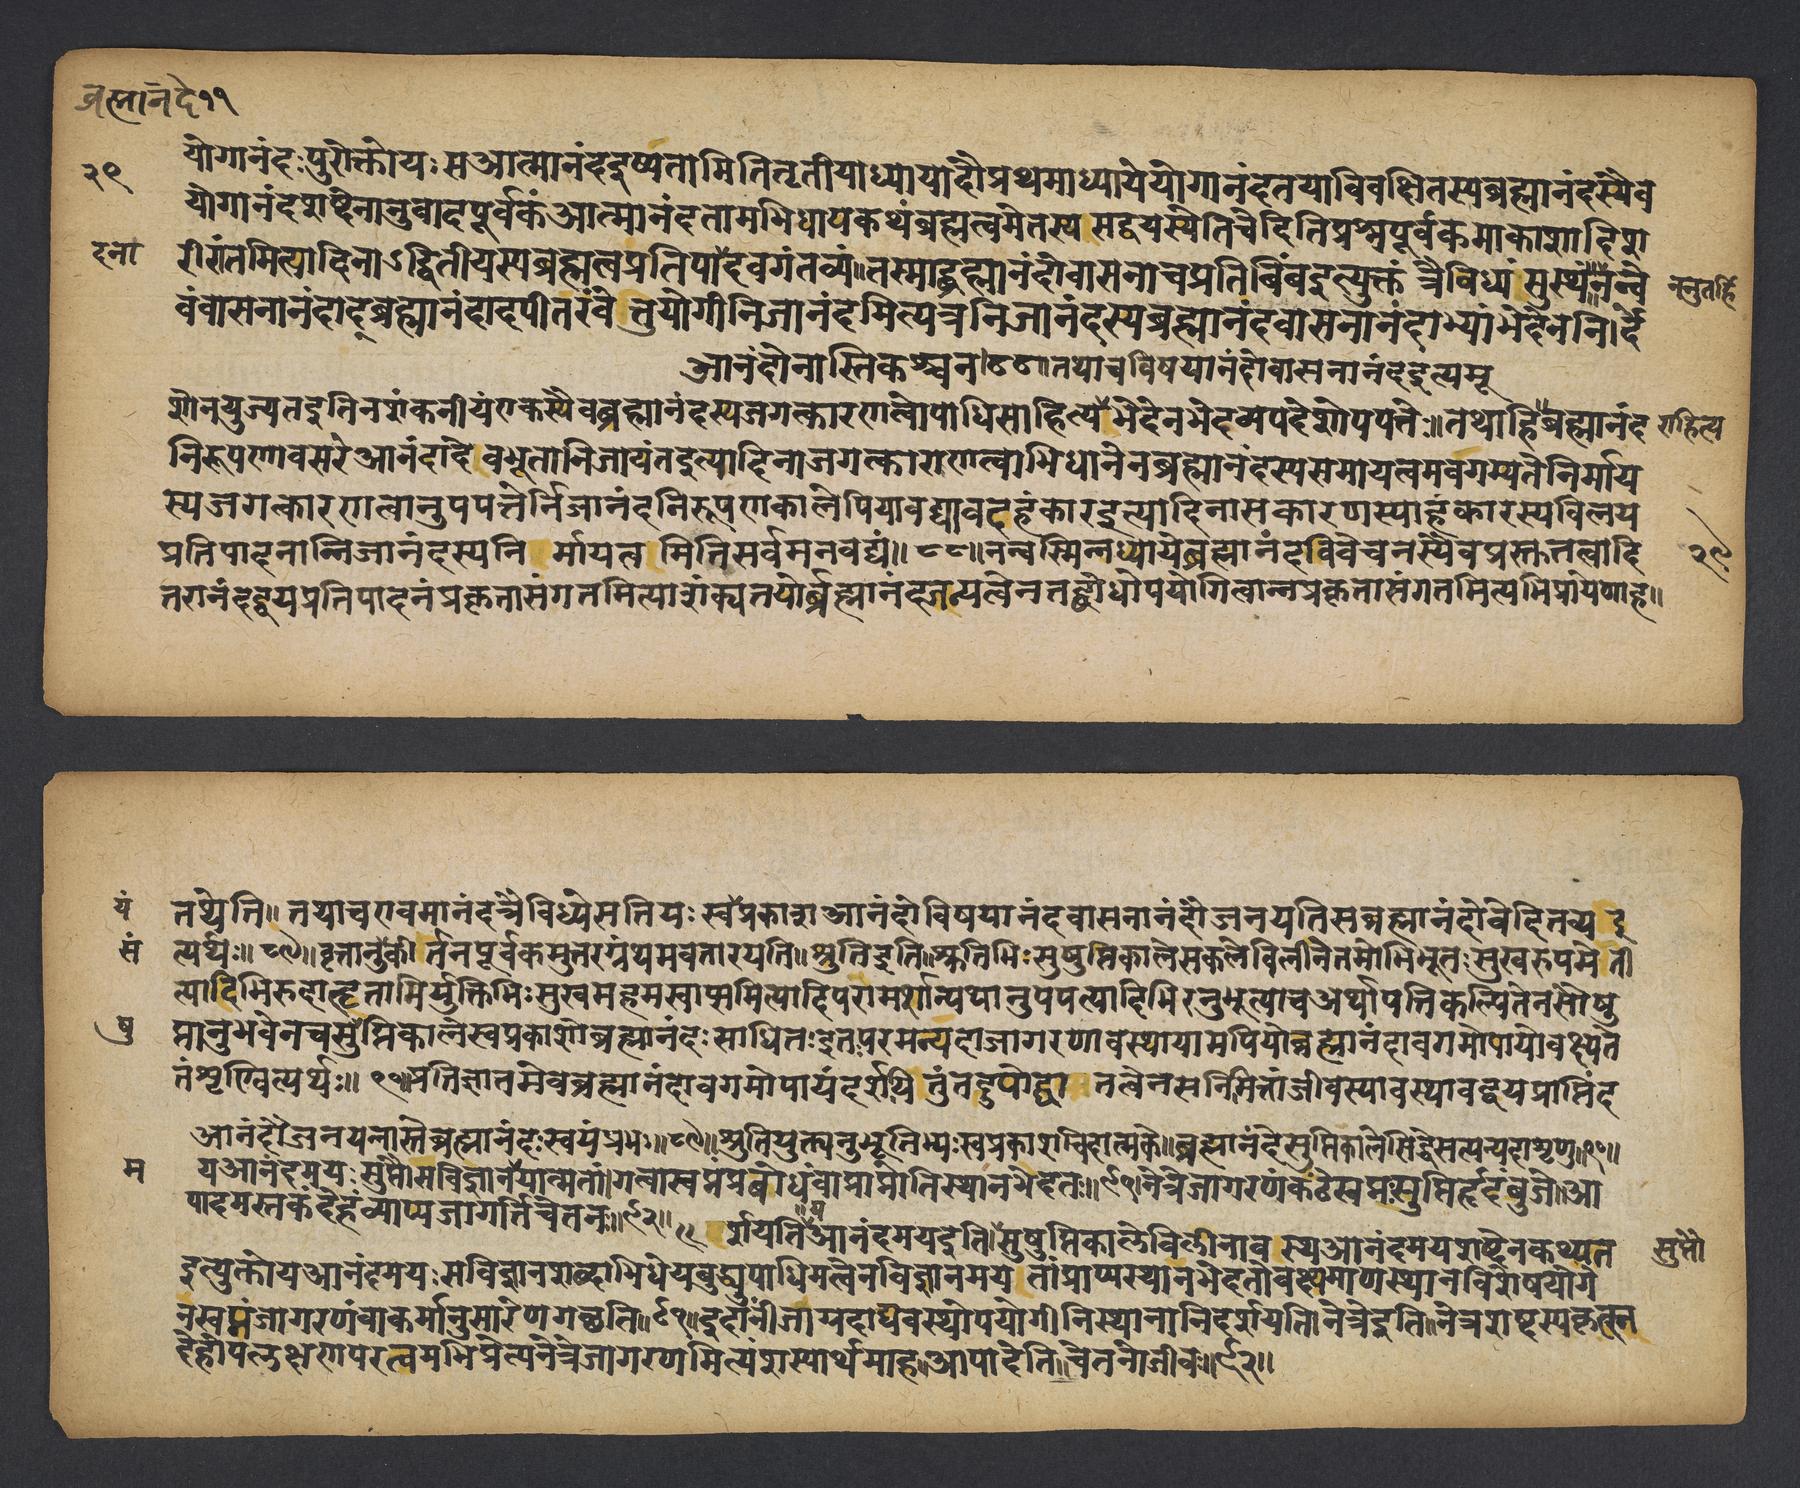 ब्रह्मानंदे ११
योगानंदः पुरोक्तोयः सआत्मानंदइष्यतामितितृतीयाध्यायादौप्रथमाध्यायेयोगानंदतयाविवक्षितस्यब्रह्मानंदस्यैव
२९
योगानंदशब्देनानुवादपूर्वकंआत्मानंदतामभिधायकथंब्रह्मत्वमेतस्यसद्वयस्येतिचेदितिप्रश्नपूर्वकमाकाशादिश
दना
रीरांतमित्यादिनाऽद्वितीयस्यब्रह्मत्वप्रतिपादवगंतव्यं॥तस्माद्ब्रह्मानंदोवासनाचप्रतिबिंबइत्युक्तं त्रैविध्यं सुस्थं॥नन्वे
ननुतर्हि
वंवासनानंदाद्ब्रह्मानंदादपीतरंवेत्तियोगीनिजानंदमित्यत्रनिजानंदस्यब्रह्मानंदवासनानंदाभ्यांभेदेननिर्दे
आनंदोनास्तिकश्चन।८८॥तथाचविषयानंदोवासनानंदइत्यमू
शोनुयुज्यतइतिनशंकनीयंएकस्यैवब्रह्मानंदस्यजगत्कारणत्वोपाधिसाहित्यभेदेनभेदव्यपदेशोपपत्तेः॥तथाहिब्रह्मानंद
राहित्य
निरूपणावसरेआनंदादेवभूतानिजायंतइत्यादिनाजगत्कारणत्वाभिधानेनब्रह्मानंदस्यसमायत्वमवगम्यतेनिर्माय
स्यजगत्कारणत्वानुपपत्तेर्निजानंदनिरूपणकालेपियावद्यावदहंकारइत्यादिनासकारणस्याहंकारस्यविलय
प्रतिपादनान्निजानंदस्यनिर्मायत्वमितिसर्वमनवद्यं॥८८॥नन्वस्मिन्नध्यायेब्रह्मानंदविवेचनस्यैवप्रस्तुतत्वादि
२९
तरानंदद्वयप्रतिपादनंप्रकृतासंगतमित्याशंक्यतयोर्ब्रह्मानंदजन्यत्वेनतद्बोधोपयोगित्वान्नप्रकृतासंगतमित्यभिप्रायेणाह॥
यं
तथेति॥तथाचएवमानंदत्रैविध्येसतियः स्वप्रकाशआनंदोविषयानंदवासनानंदौजनयतिसब्रह्मानंदोवेदितव्यइ
सं
त्यर्थः॥८९॥वृत्तानुकीर्तनपूर्वकमुत्तरग्रंथमवतारयति॥श्रुतिइति॥श्रुतिभिःसुषुप्तिकालेसकलेविलीनेतमोभिभूतःसुखरुपमेती
त्यादिभिरुदाहृताभिर्युक्तिभिःसुखमहमस्वाप्समित्यादिपरामर्शान्यथानुपपत्यादिभिरनुभूत्याचअर्थापत्तिकल्पितेनसौषु
षु
प्तानुभवेनचसुप्तिकालेस्वप्रकाशोब्रह्मानंदः साधितः इतःपरमन्यदाजागरणावस्थायामपियोब्रह्मानंदावगमोपायोवक्ष्यते
तंशृण्वित्यर्थः॥९०॥प्रतिज्ञातमेवब्रह्मानंदावगमोपायंदर्शयितुंतदुपोद्घातत्वेनसनिमित्तांजीवस्यावस्थावद्वयप्राप्तिंद
आनंदौजनयन्नास्तेब्रह्मानंदःस्वयंप्रभः॥८९॥श्रुतियुक्त्यनुभूतिभ्यःस्वप्रकाशचिदात्मके॥ब्रह्मानंदेसुप्तिकालेसिद्धेसत्यन्यदाशृणु॥९०॥
म
यआनंदमयःसुप्तौसविज्ञानयात्मतां।गत्वास्वप्नंप्रबोधंवाप्राप्नोतिस्थानभेदतः॥९१॥नेत्रेजागरणंकंठेस्वप्नःसुप्तिर्हृदंबुजे॥आ
पादमस्तकंदेहंव्याप्यजागर्त्तिचेतनः॥९२॥ र्शयति॥आनंदमयइति।सुषुप्तिकालेविलीनावस्थआनंदमयशब्देनकथ्यत
सुप्तौ
इत्युक्तोयआनंदमयःसविज्ञानशब्दाभिधेयबुद्ध्युपाधिमत्वेनविज्ञानमयतांप्राप्यस्थानभेदतोवक्ष्यमाणस्थानविशेषयोगे
नस्वप्नंजागरणंवाकर्मानुसारेणगच्छति॥९१॥इदानींजाग्रदाद्यवस्थोपयोगीनिस्थानानिदर्शयति॥नेत्रेइति॥नेत्रशब्दस्यकृत्स्न
देहोपलक्षणपरत्वमभिप्रेत्यनेत्रेजागरणमित्यंशस्यार्थमाह॥आपादेति॥चेतनोजीवः॥९२॥